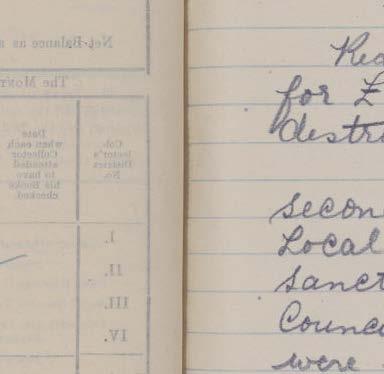 Net Balance as a
The Mont
Col-
lector's
District
No.
Date
when each
Collector
attended
to have
his Books
checked.
I.
II.
III.
IV.
for £
destr
secon
Local
Sanct
Counc
were